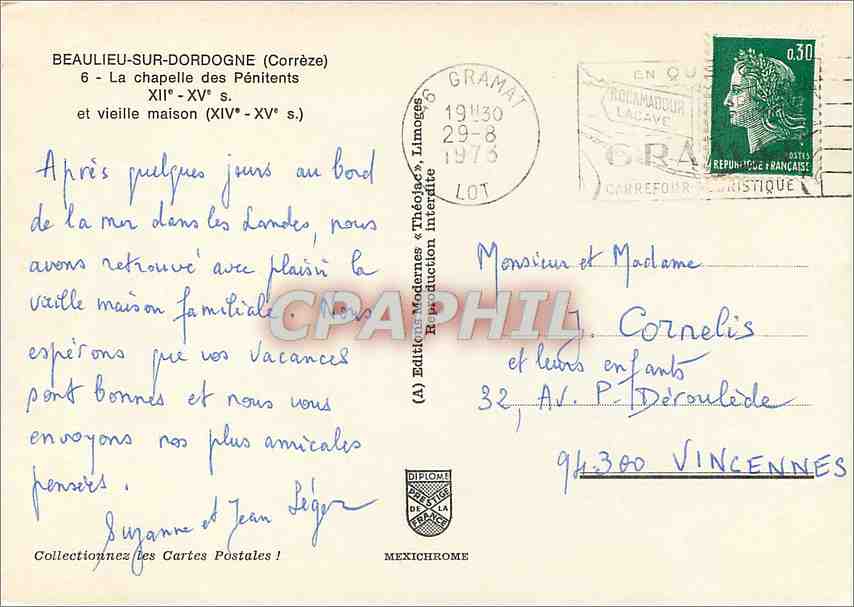 BEAULIEU-SUR-DORDOGNE (Corrèze)
6 - La chapelle des Pénitents
XIIe - XVe s.
et vieille maison (XIVe - XVe s.)
Après quelques jours au bord
de la mer dans les Landes, nous
avons retrouvé avec plaisir la
vieille maison familiale. Nous
espérons que vos vacances
sont bonnes et nous vous
envoyons nos plus amicales
pensées.
Suzanne et Jean Léger
Collectionnez les Cartes Postales !
(A) Editions Modernes «Théojac», Limoges
Reproduction interdite
DIPLOME
PRESTIGE
DE LA
FRANCE
MEXICHROME
46 GRAMAT
19H30
29-8
1973
LOT
EN QU
ROCAMADOUR
LACAVE
GRA
CARREFOUR RISTIQUE
0,30
POSTES
REPUBLIQUE FRANÇAISE
Monsieur et Madame
J. Cornelis
et leurs enfants
32, Av. P. Déroulède
94300 VINCENNES
CPAPHIL